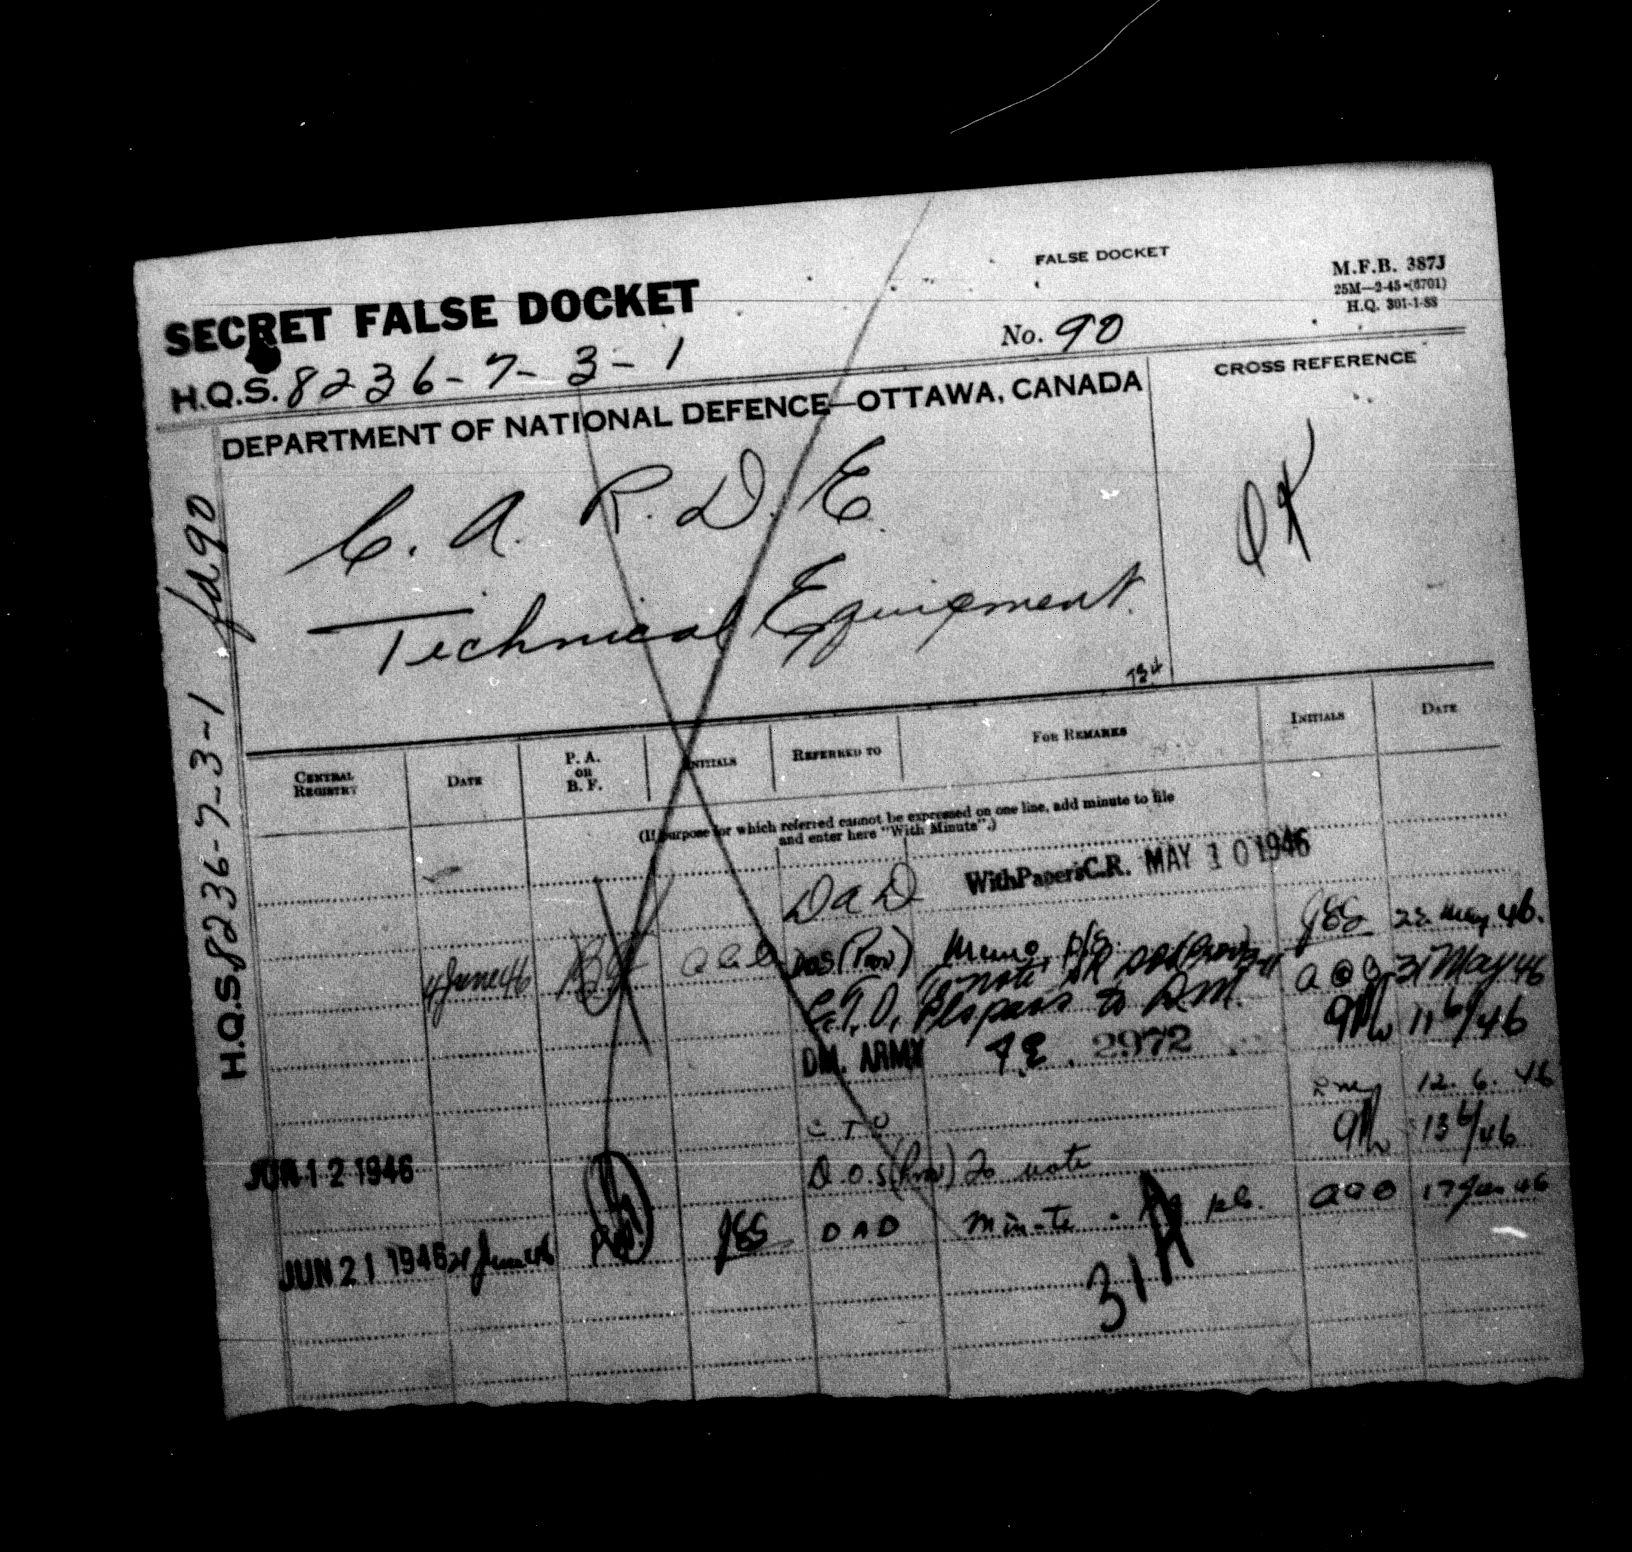 FALSE DOCKET
M.F.B. 387J
25M—2-45-(6701)
H.Q. 301-1-88
SECRET FALSE DOCKET
No. 90
H.Q.S. 8236-7-3-1
CROSS REFERENCE
DEPARTMENT OF NATIONAL DEFENCE—OTTAWA, CANADA
C. A. R. D. E.
OK
Technical Equipment.
H.Q.S. 8236-7-3-1 fd 90
CENTRAL REGISTRY
DATE
P. A. OR B. F.
INITIALS
REFERRED TO
FOR REMARKS
INITIALS
DATE
(If purpose for which referred cannot be expressed on one line, add minute to file
and enter here "With Minute".)
With Papers C.R. MAY 10 1946
DAD
JES 22 May 46.
4 June 46 BF DOS (Prov) Memo,
31 May 46
C.T.O. Pls pass to DM. 11/6/46
DM. ARMY 2972
12. 6. 46
C T O 13/6/46
JUN 12 1946 D.O.S (Prov) To note
JUN 21 1946 21 June 46 P.A. JES DAD Minute 17 Jun 46
31A